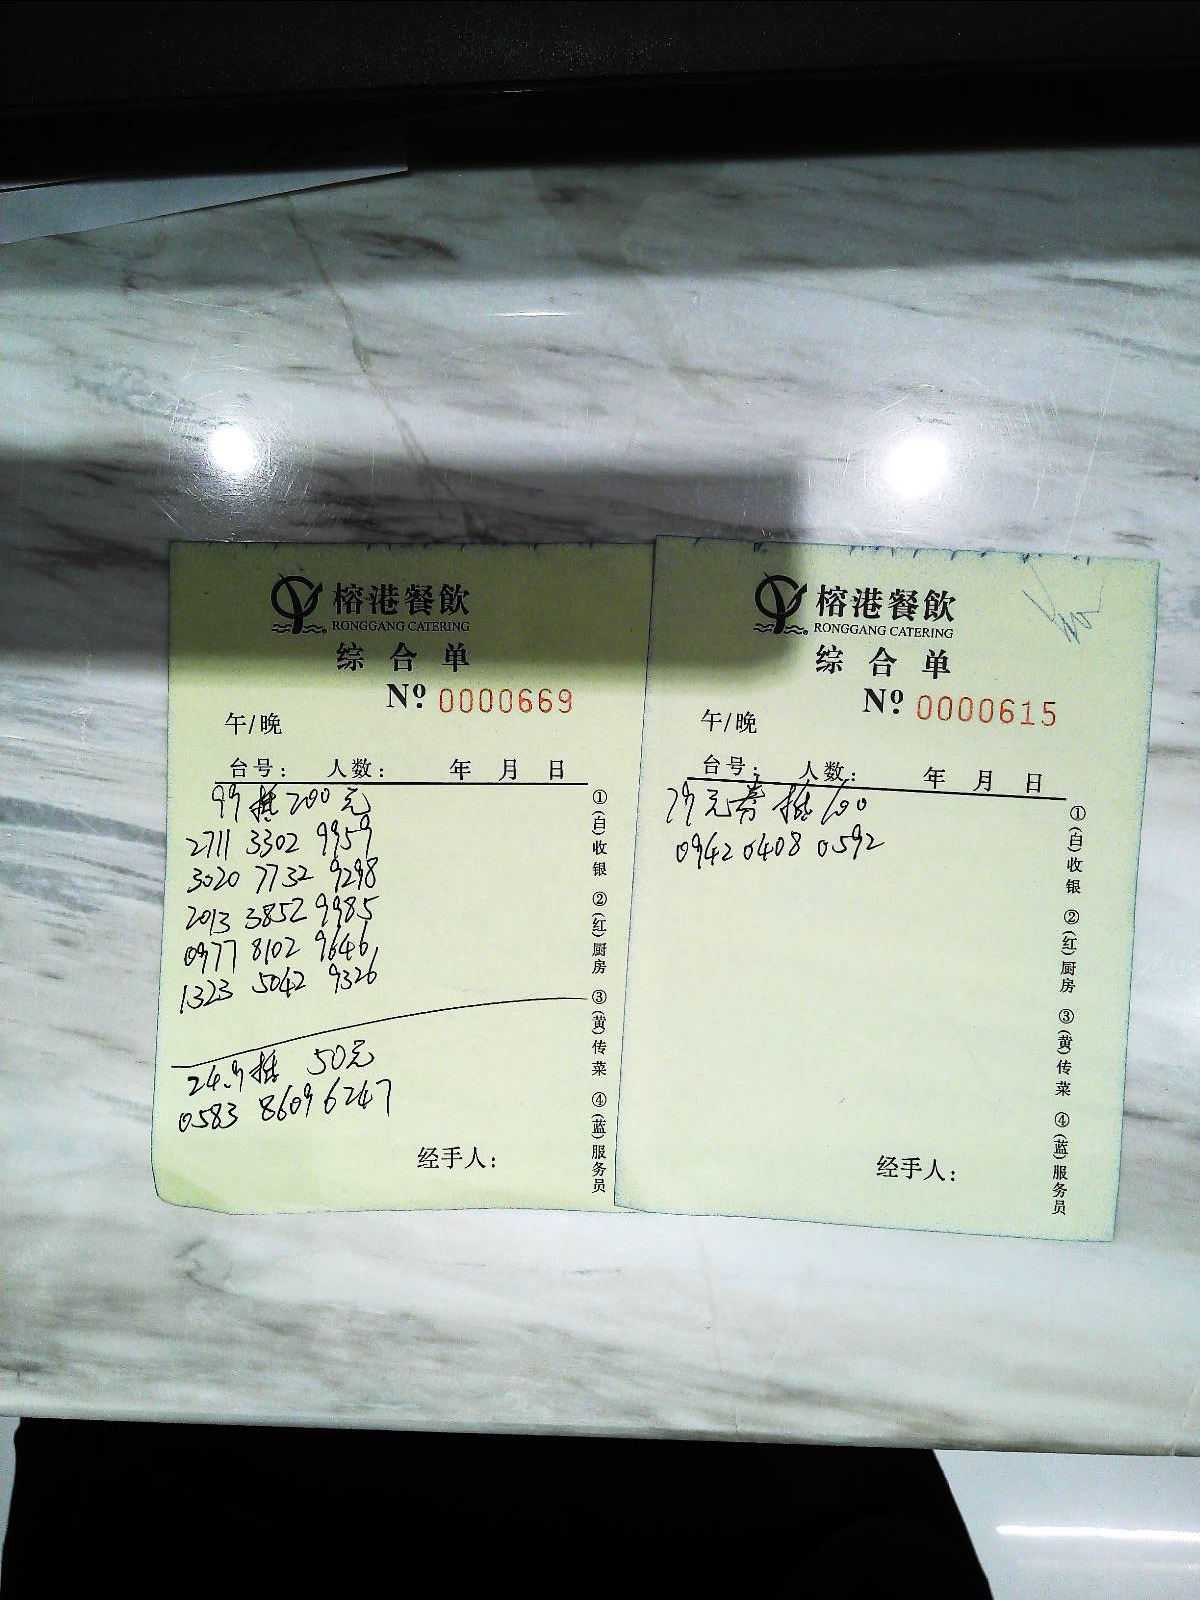 榕港餐飲
RONGGANG CATERING
综合单
Nº 0000669
午/晚
台号: 人数: 年 月 日
99抵200元
2711 3302 9959
3020 7732 9298
2013 3852 9985
0977 8102 9646
1323 5042 9326
24.9抵 50元
0583 8609 6247
经手人:
①(白)收银 ②(红)厨房 ③(黄)传菜 ④(蓝)服务员
榕港餐飲
RONGGANG CATERING
综合单
Nº 0000615
午/晚
台号: 人数: 年 月 日
79元券抵100
0942 0408 0592
经手人:
①(白)收银 ②(红)厨房 ③(黄)传菜 ④(蓝)服务员